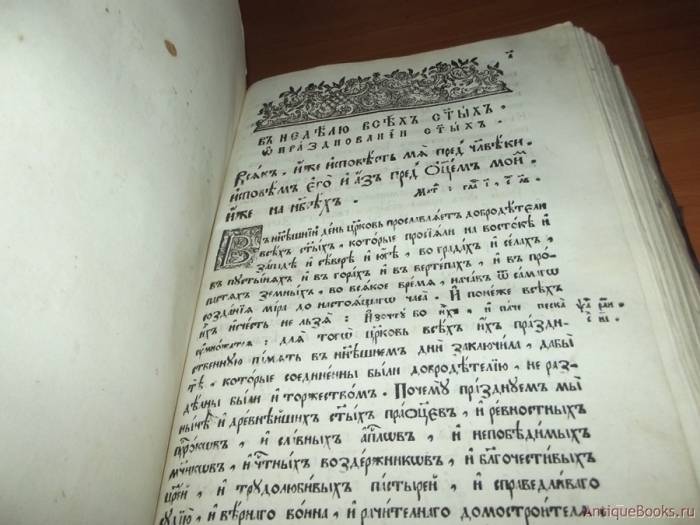 а҃
ВЪ НЕДѢЛЮ ВСѢХЪ СТ҃ЫХЪ .
Ѿ ПРАЗДНОВАНІИ СТ҃ЫХЪ .
Всѧкъ , и҆́же исповѣсть мѧ̀ пред̾ чл҃вѣки
исповѣмъ его̀ и а҆́зъ пред̾ ѻ҆ц҃емъ мои́м̾
и҆́же на нб҃сѣхъ . Маѳ : гла і҃ , с ла҃в .
Въ нн҃ѣшнїй день цр҃ковь прославлѧетъ добродѣтели
всѣхъ ст҃ыхъ , которые просїѧли на востокѣ и
западѣ и сѣверѣ и ю҆́гѣ , во градѣхъ и селахъ ,
в̾ пустынѧхъ и в̾ горахъ и в̾ вертепахъ , и в̾ про
пастѧхъ земныхъ , во всѧкое времѧ , начавъ ѿ самагѡ
созданїѧ мі́ра до настоѧщагѡ часа . И понеже всѣхъ
ихъ исчесть не льзѧ : И҆зочту̀ бо и҆̀хъ , и паче песка
оумножатсѧ : для тогѡ цр҃ковь всѣхъ и҆́хъ праздн
ственную память в̾ нн҃ѣшнем̾ дни заключила , дабы
тѣ , которые соединенны были добродѣтелїю , не раз
дѣлны были и торжеством̾ . Почему празднуем̾ мы
нынѣ и древнѣйшихъ ст҃ыхъ пра́ѻтцєвъ , и ревностныхъ
пр҃рокѡвъ , и славныхъ ап҃лѡвъ , и непобѣдимыхъ
мч҃никѡвъ , и чт҃ныхъ воздержникѡвъ , и благочестивыхъ
цр҃ей , и трудолюбивыхъ пастырей , и справедливаго
судїю , и вѣрнаго воина , и рачителнаго домостроителѧ
AntiqueBooks.ru